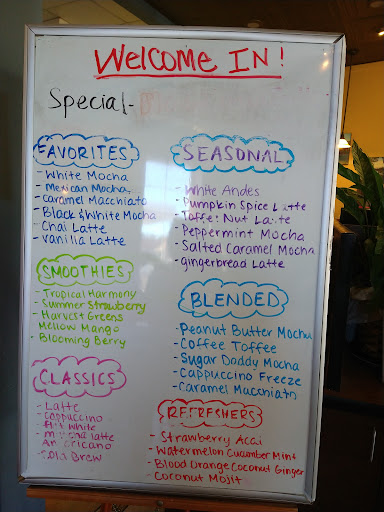 WELCOME IN!
Special-
FAVORITES
- White Mocha
- Mexican Mocha
- Caramel Macchiato
- Black & White Mocha
- Chai Latte
- Vanilla Latte
SMOOTHIES
- Tropical Harmony
- Summer Strawberry
- Harvest Greens
- Mellow Mango
- Blooming Berry
CLASSICS
- Latte
- Cappuccino
- Flat White
- matcha latte
- Americano
- Cold Brew
SEASONAL
- White Andes
- Pumpkin Spice Latte
- Toffee Nut Latte
- Peppermint Mocha
- Salted Caramel Mocha
- gingerbread Latte
BLENDED
- Peanut Butter Mocha
- Coffee Toffee
- Sugar Daddy Mocha
- Cappuccino Freeze
- Caramel Macchiato
REFRESHERS
- Strawberry Acai
- Watermelon Cucumber Mint
- Blood Orange Coconut Ginger
- Coconut Mojit